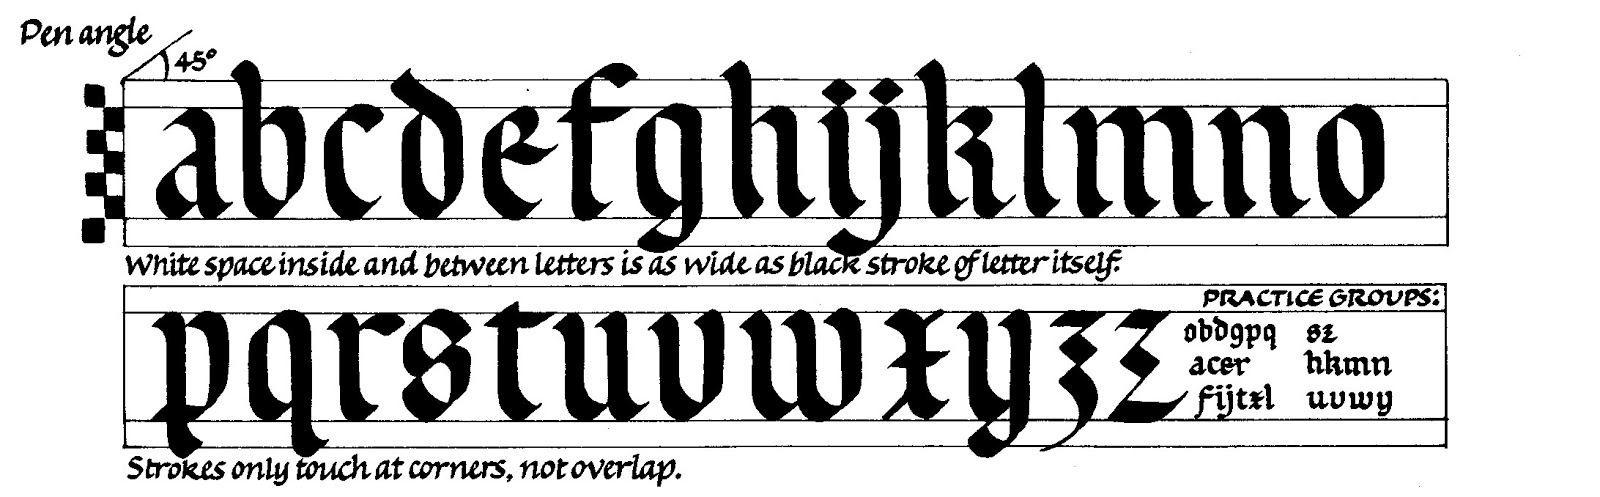 Pen angle
45°
abcdefghijklmno
White space inside and between letters is as wide as black stroke of letter itself.
PRACTICE GROUPS:
pqrstuvwxyzz
obdgpq sz
acer hkmn
fijtxl uvwy
Strokes only touch at corners, not overlap.